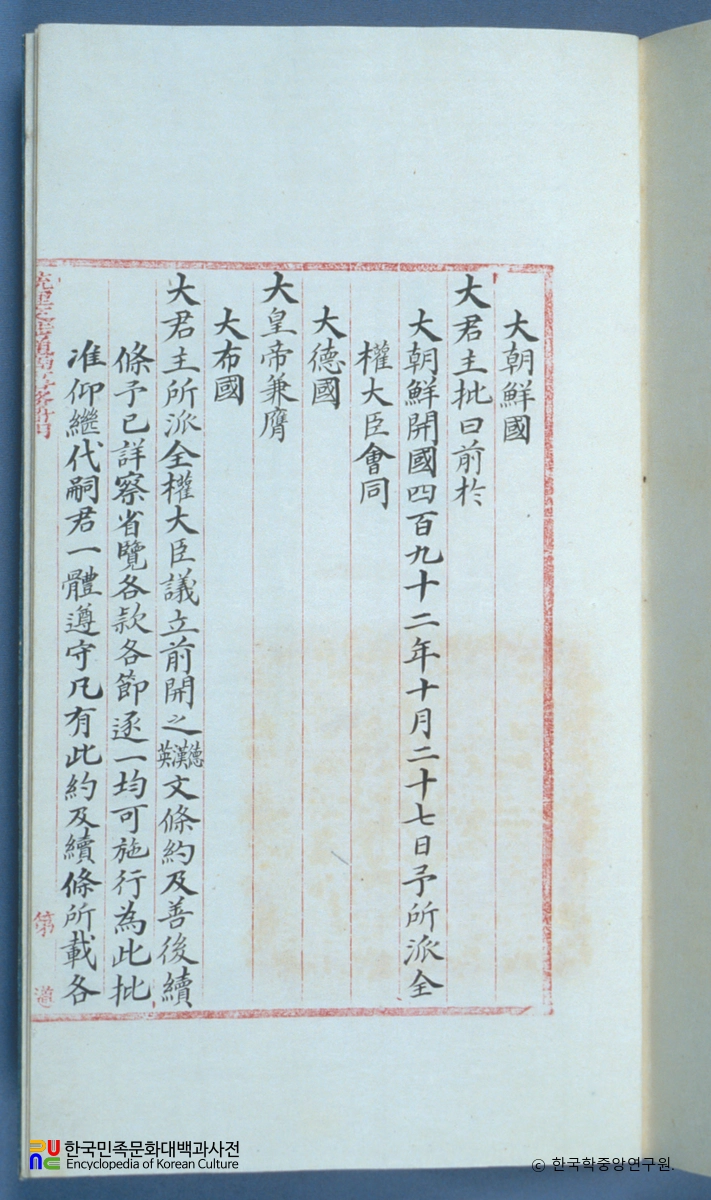 大朝鮮國
大君主批曰前於
大朝鮮開國四百九十二年十月二十七日予所派全
權大臣會同
大德國
大皇帝兼膺
大布國
大君主所派全權大臣議立前開之德漢英文條約及善後續
條予已詳察省覽各款各節逐一均可施行為此批
准仰繼代嗣君一體遵守凡有此約及續條所載各
第 道
한국민족문화대백과사전
Encyclopedia of Korean Culture
© 한국학중앙연구원.